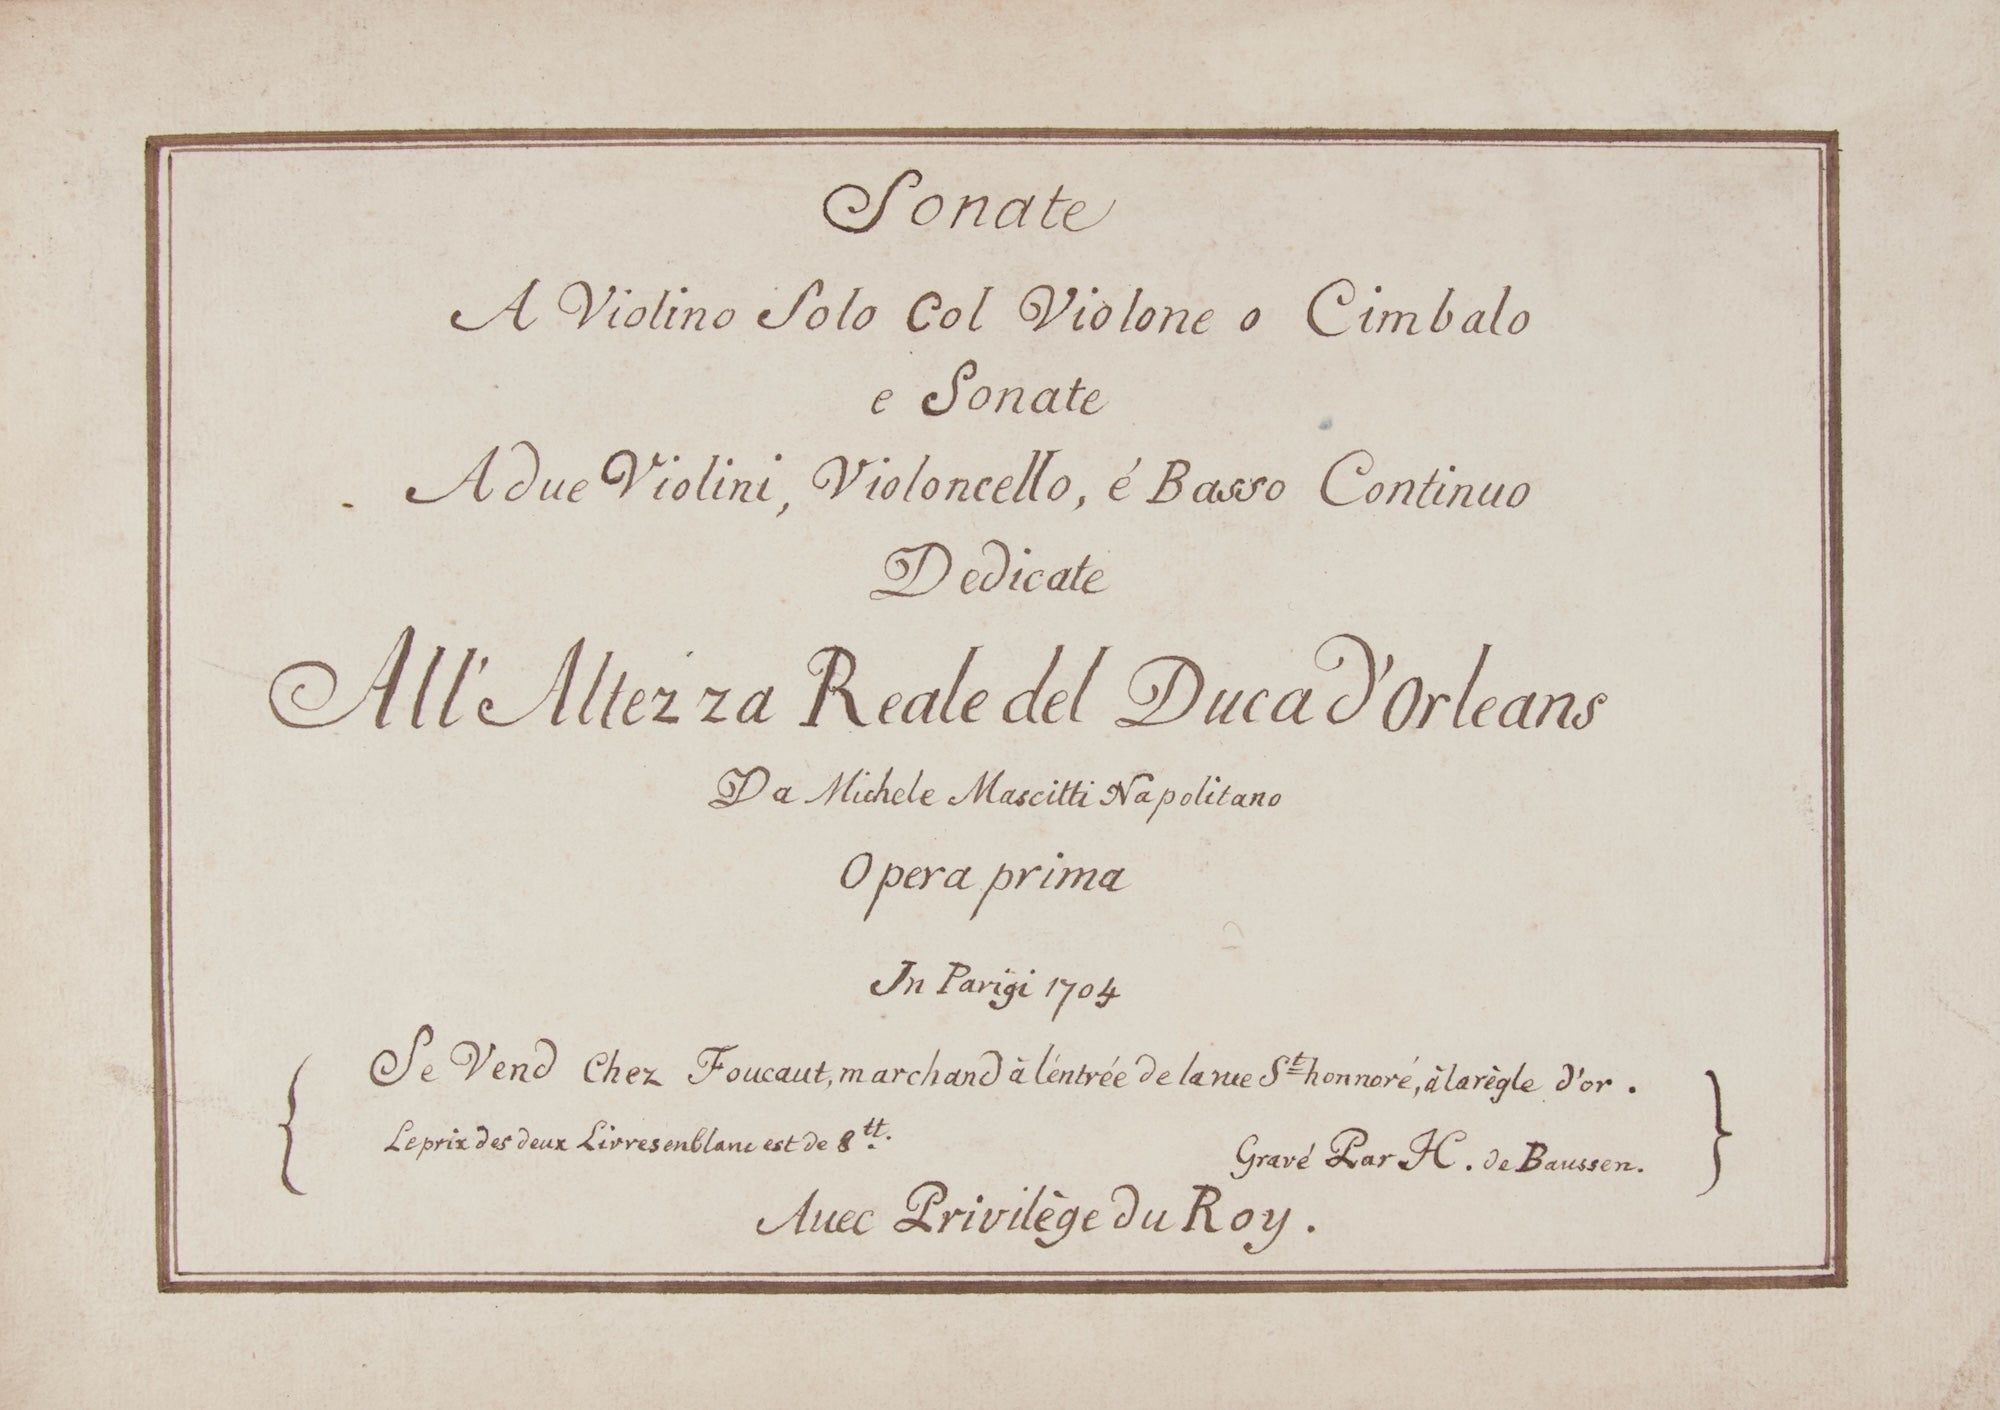 Sonate
A Violino Solo Col Violone o Cimbalo
e Sonate
A due Violini, Violoncello, é Basso Continuo
Dedicate
All' Altezza Reale del Duca d'Orleans
Da Michele Mascitti Napolitano
Opera prima
In Parigi 1704
Se Vend Chez Foucaut, marchand à l'éntrée de la rue St honnoré, à la règle d'or.
Le prix des deux Livres en blanc est de 8tt.
Gravé Par H. de Baussen.
Auec Privilège du Roy.